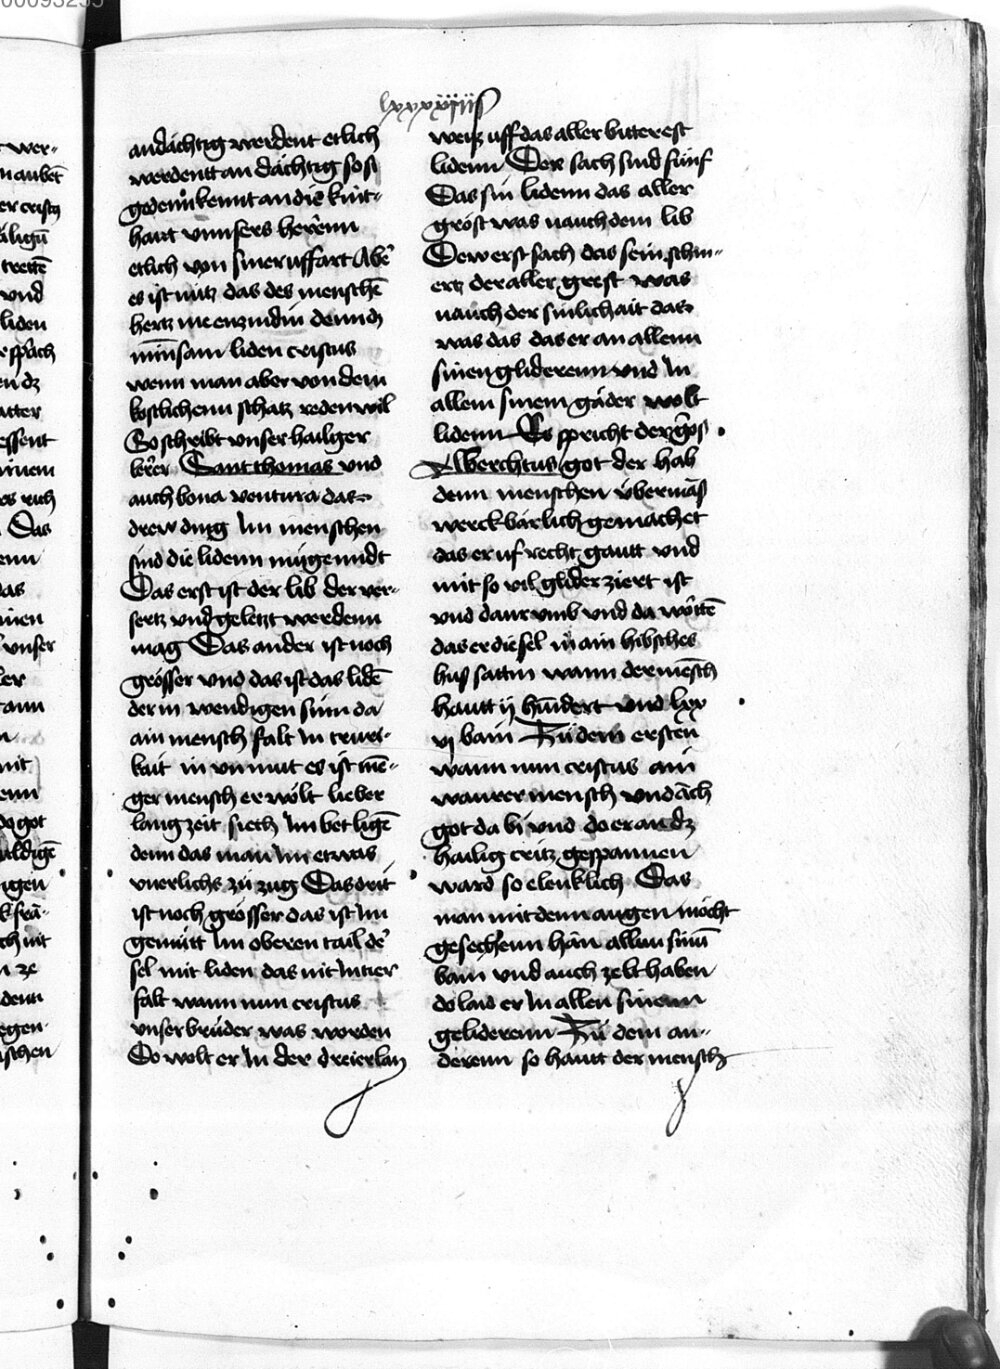 lxxxxiiij
andächtig werdent etlich
werdentt an dächtig so si
gedennkennt an die kint-
hait vnnsers herrenn
etlich von siner uffart Aber
es ist nütz das des menschē
hertz me enzindin denn dz
minsam liden cristus
wenn man aber von dem
kostlichenn schatz reden wil
So schribt vnser hailger
lerer Sant thomas vnd
auch bona ventura das
drew ding Im menschen
sind die lidenn mügenndt
Das erst ist der lib der ver-
sertz vnd geletzt werdenn
mag Das ander ist noch
grösser vnd das ist das lidē
der in wendigen sinn da
ain mensch falt In truri-
kait in vn mut es ist mē-
ger mensch er wölt lieber
lang zeit siech Im bet ligē
denn das man Im etwas
vnerlichs zü zug Das drit
ist noch grösser das ist Im
gemütt Im oberen tail de
sel mit liden das nit Inteer
falt wann nun cristus
vnser brüder was worden
So wolt er In der dreierlay
weis uff das aller bitterest
lidenn Der sach sind fünf
Das sin lidenn das aller
gröst was nauch dem lib
Dew erst sach das sein schm-
ertz der aller grest was
nauch der sinlichait das
was das das er an allenn
sinen gliderenn vnd In
allem sinem gäder wolt
lidenn Es spricht der gros
Alberchtus got der hab
denn menschen übermäs
werckbärlich gemachet
das er uf recht gautt vnd
mit so vil glider ziert ist
vnd daur vmb vnd da wöttē
das er die sel in ain hibsches
hus sattin wann der mēsch
hautt ij hundert vnd lxx
vj bain Zü dem ersten
wann nun cristus ain
waurer mensch vnd äch
got da bi vnd do er an dz
hailig critz gespannen
ward so elenklich Das
man mit denn augen möcht
gesechenn hän allun sinū
bain vnd auch zelt haben
do laid er In allen sinenn
geliderenn Zü dem an-
derenn so hautt der mensch